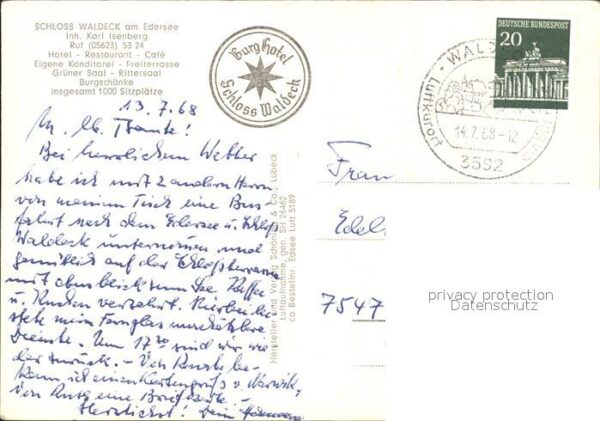 SCHLOSS WALDECK am Edersee
Inh. Karl Isenberg
Ruf (05623) 53 24
Hotel - Restaurant - Café
Eigene Konditorei - Freiterrasse
Grüner Saal - Rittersaal
Burgschänke
insgesamt 1000 Sitzplätze
Burghotel
Schloss Waldeck
DEUTSCHE BUNDESPOST
20
WALD
Luftkurort
14.7.68-12
3592
13.7.68
M. lb. Frauke!
Bei herrlichem Wetter
habe ich mit 2 anderen Herren
von meinem Tisch eine Bus-
fahrt nach dem Edersee u. Schloß
Waldeck unternommen und
gemütlich auf der Schloßterrasse
mit ausblick zum See Kaffee
u. Kuchen verzehrt. Hierbei lei-
stete mein Fernglas unschätzbare
Dienste. Um 17 30 sind wir wie
der zurück. - Von Renate be-
kam ich einen Kartengruß v.
von Antje eine Briefkarte. -
Herzlichst! Dein
Hersteller und Verlag Schöning & Co., Lübeck
Luftaufnahme, gen. SH 26462
ca Bestellnr. Edsee Luft 5189
Frau
Edel
7547
privacy protection
Datenschutz